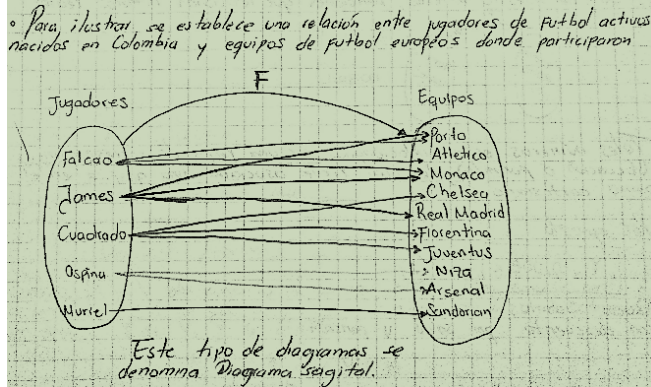 ° Para ilustrar se establece una relación entre jugadores de Futbol activos
nacidos en Colombia y equipos de futbol europeos donde participaron
F
Jugadores
Equipos
Falcao
James
Cuadrado
Ospina
Muriel
Porto
Atletico
Monaco
Chelsea
Real Madrid
Fiorentina
Juventus
Niza
Arsenal
Sandorian
Este tipo de diagramas se
denomina Diagrama sagital.